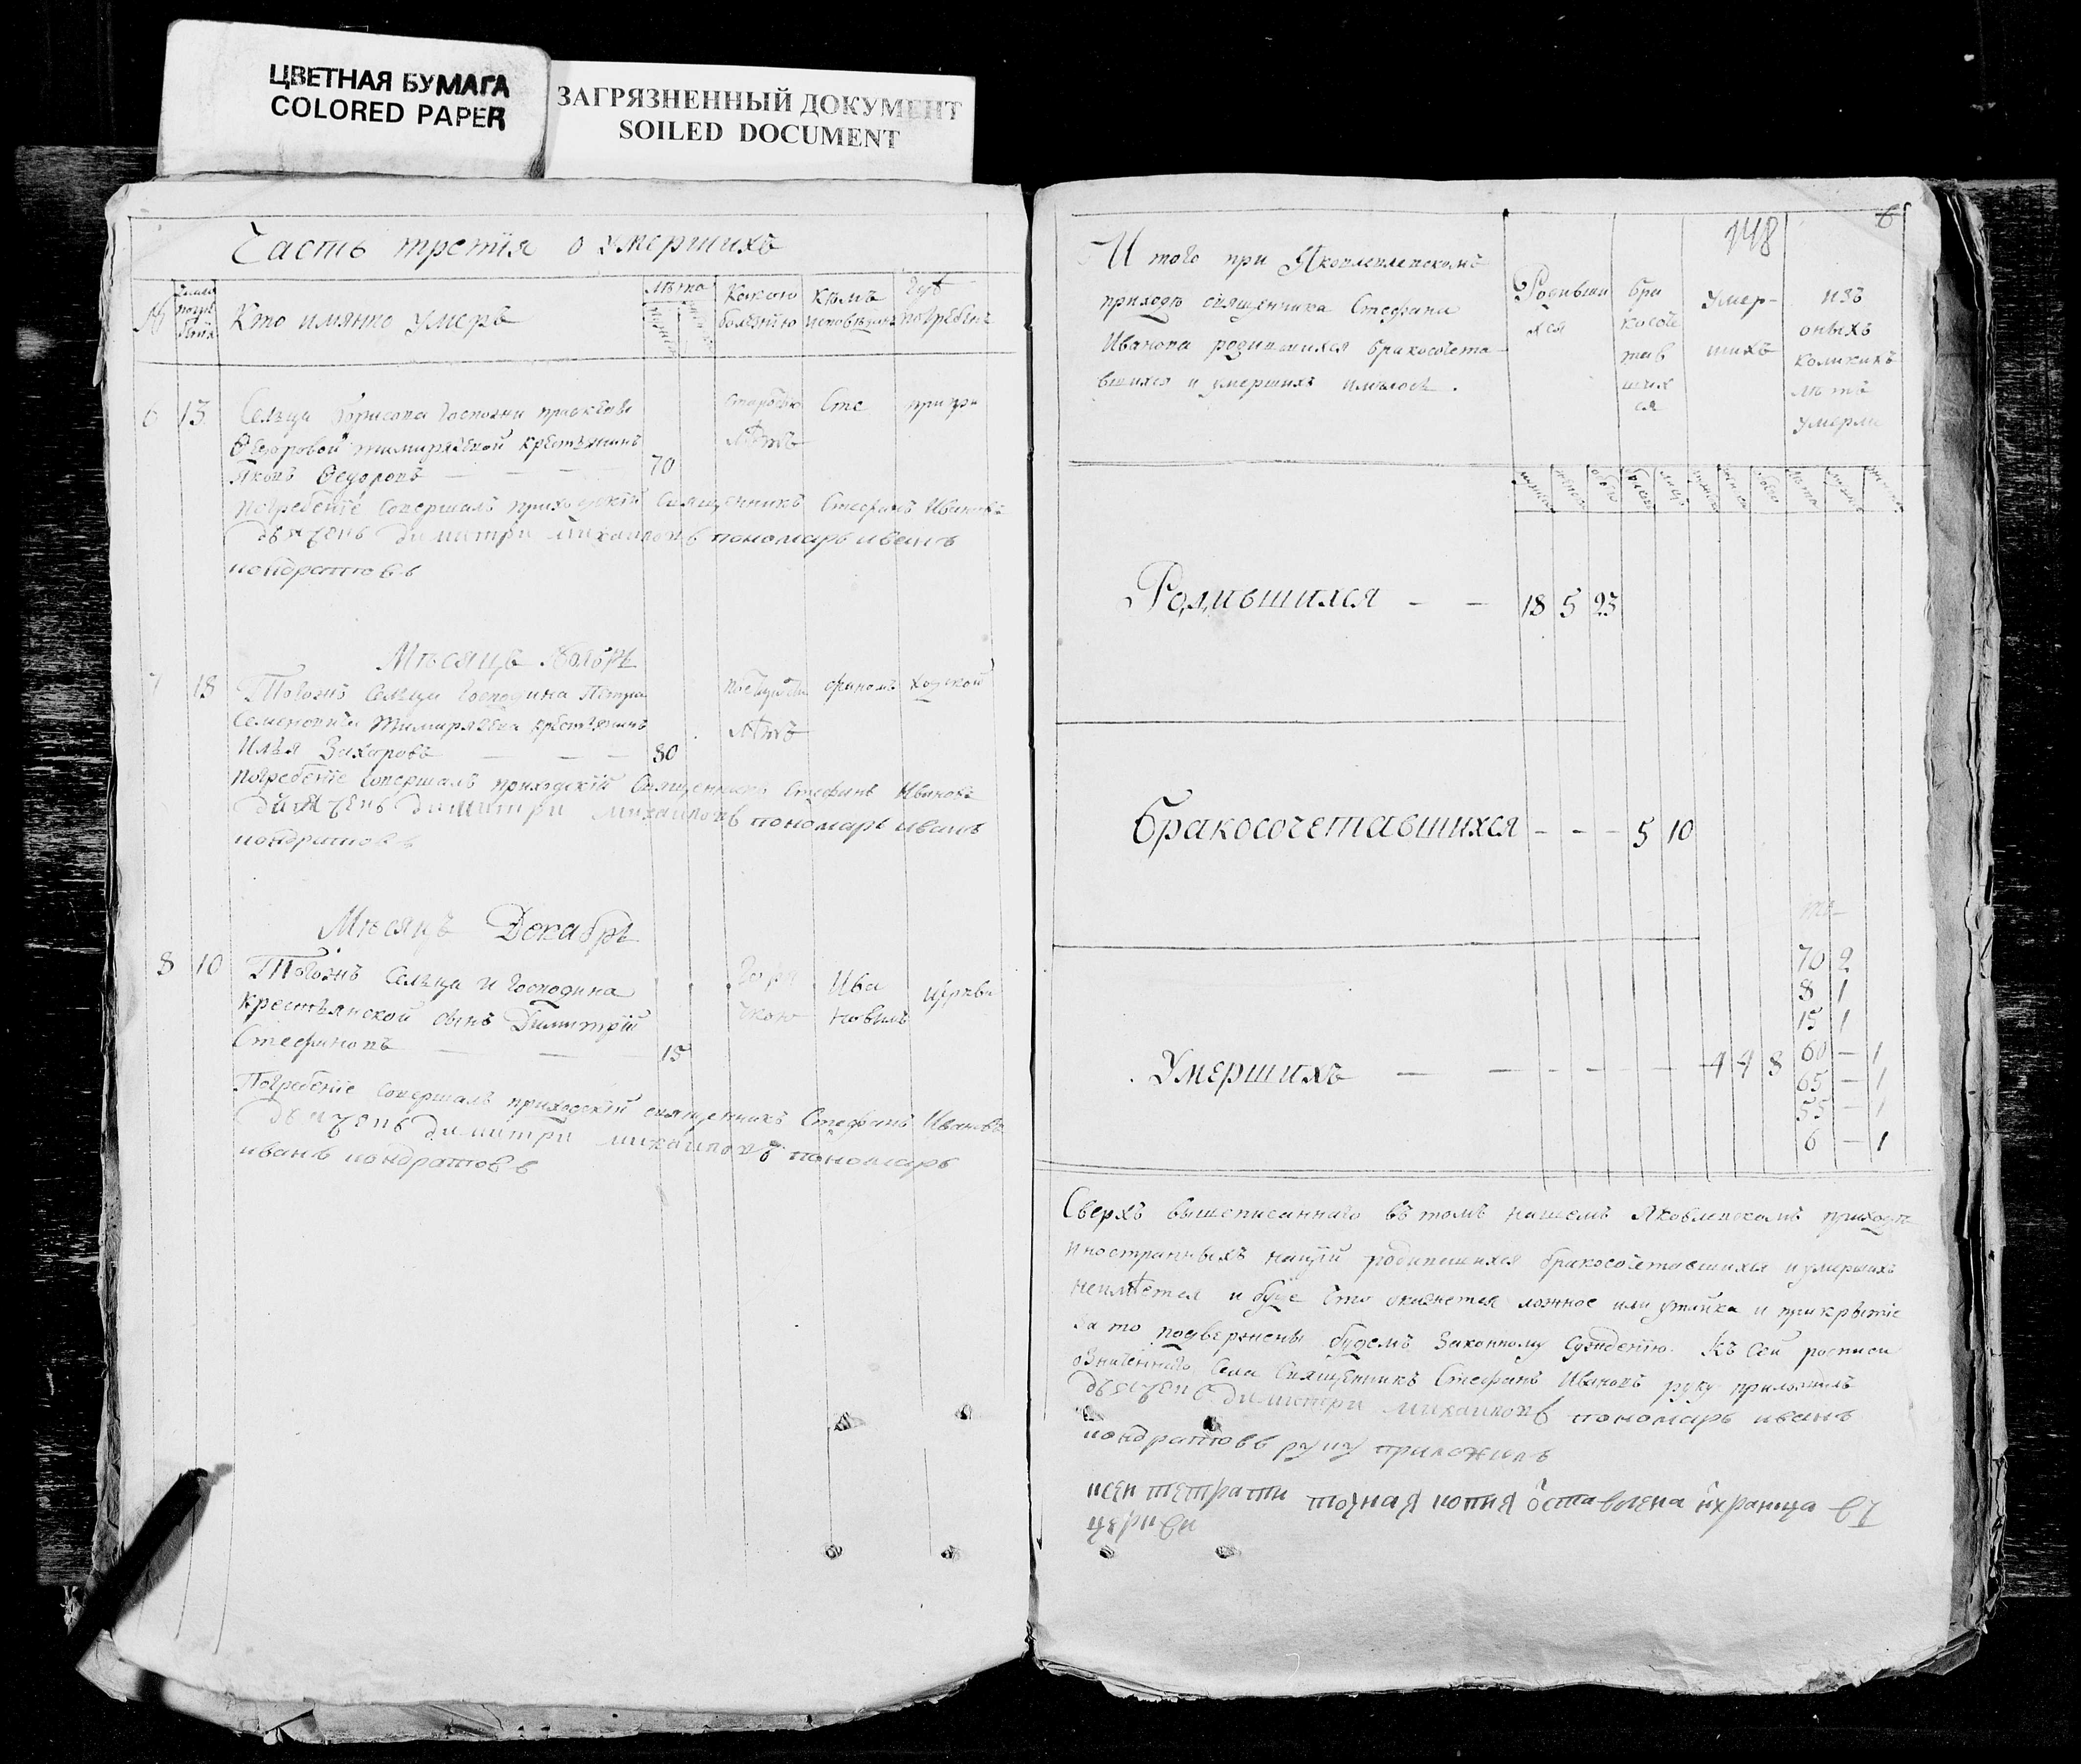 ЦВЕТНАЯ БУМАГА
COLORED PAPER
ЗАГРЯЗНЕННЫЙ ДОКУМЕНТ
SOILED DOCUMENT
Часть третїя о умершихъ
№
Кто имянно умеръ
Лѣта
Какою болѣзнїю
Кѣмъ исповѣданъ
Гдѣ погребенъ
6 13 Сельца Борисова Госпожи
Ѳедоровой Тимирязевой крестьянинъ
Яковъ Ѳедоровъ — — — 70
старостїю лѣтъ
Сте
при при
погребенїе совершалъ приходскїй священникъ Стефанъ Ивановъ
дьячекъ димитри михаиловъ пономарь иванъ
кондратовъ
Мѣсяцъ Ноябрь
7 18 Тогожъ Сельца Господина Петра
Семеновича Тимирязева крестьянинъ
Илья Захаровъ — — — 80
лѣтъ
фаномъ
ходской
погребенїе совершалъ приходскїй Священникъ Стефанъ Ивановъ
дьячекъ димитри михаиловъ пономарь иванъ
кондратовъ
Мѣсяцъ Декабрь
8 10 Тогожъ Сельца и Господина
крестьянской сынъ Димитрїй
Стефановъ — — — 15
горя
чкою
Ива
новымъ
церкви
Погребенїе совершалъ приходскїй священникъ Стефанъ Ивановъ
дьячекъ димитри михаиловъ пономарь
иванъ кондратовъ
148
6
И того при Яковлевскомъ
приходѣ священника Стефана
Иванова родившихся бракосочета
вшихся и умершихъ имѣлось.
Родивши
хся
бра
косоче
тав
ших
ся
Умер-
шихъ
изъ
оныхъ
коликихъ
лѣтъ
умерли
Родившихся — — 18 5 23
Бракосочетавшихся - - - 5 10
Умершихъ — — - - - - 4 4 8
70 2
8 1
15 1
60 — 1
65 — 1
55 — 1
6 — 1
Сверхъ вышеписаннаго въ томъ нашемъ Яковлевскомъ приходѣ
иностранныхъ нацїй родившихся бракосочетавшихся и умершихъ
неимѣется и буде что окажется ложное или утайка и прикрытїе
за то подвержены будемъ Законному Сужденїю. Къ сей росписи
означеннаго Села Священникъ Стефанъ Ивановъ руку приложилъ
дьячекъ димитри михаиловъ пономарь иванъ
кондратовъ руку приложилъ
ксеи тетрати точная копия оставлена ихраница въ
церкви